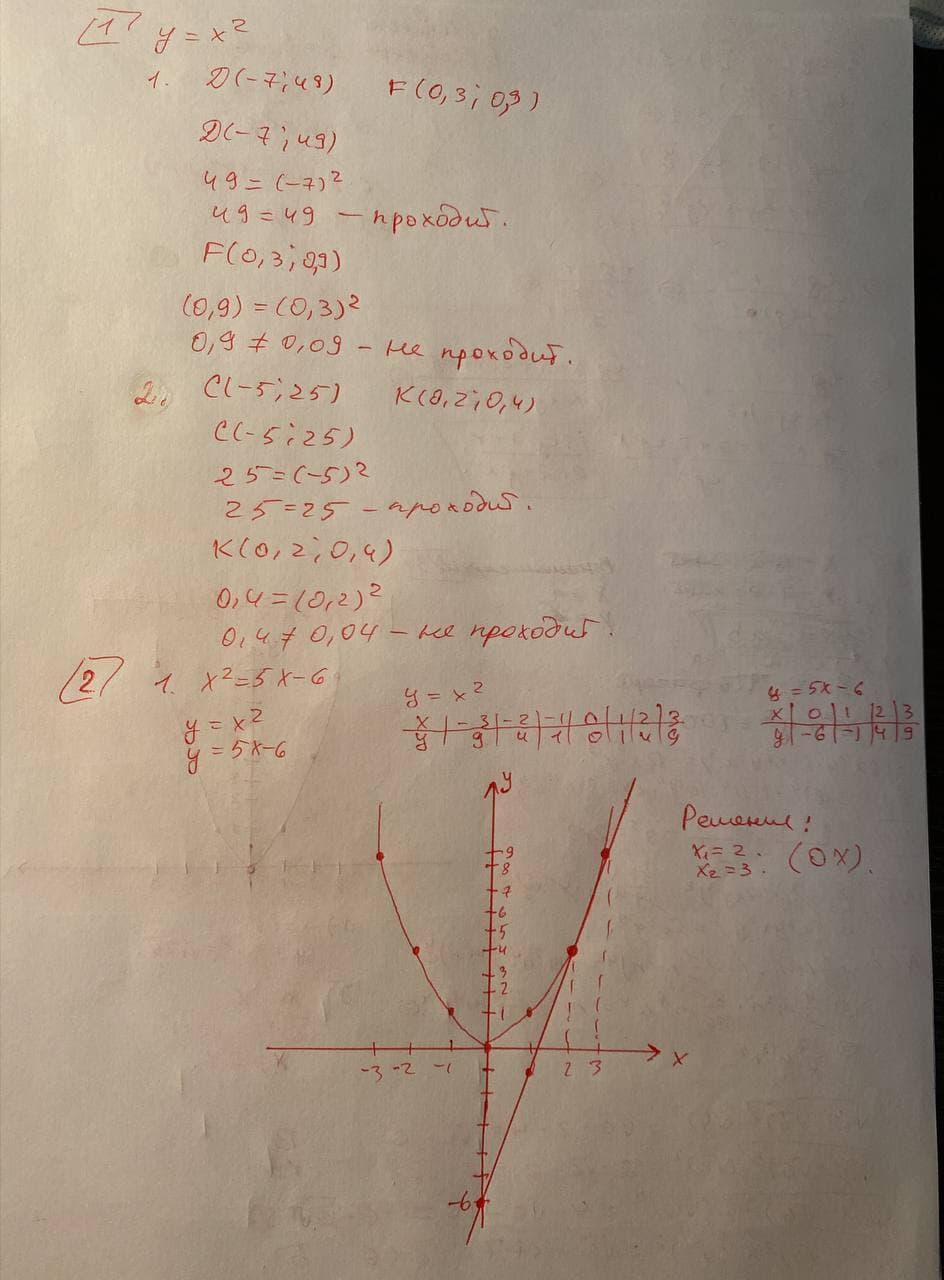 1 y = x²
1. D(-7; 49) F(0,3; 0,9)
D(-7; 49)
49 = (-7)²
49 = 49 – проходит.
F(0,3; 0,9)
(0,9) = (0,3)²
0,9 ≠ 0,09 – не проходит.
2. C(-5; 25) K(0,2; 0,4)
C(-5; 25)
25 = (-5)²
25 = 25 – проходит.
K(0,2; 0,4)
0,4 = (0,2)²
0,4 ≠ 0,04 – не проходит.
2 1. x² = 5x - 6
y = x²
y = 5x - 6
y = x²
x | -3 | -2 | -1 | 0 | 1 | 2 | 3
y | 9 | 4 | 1 | 0 | 1 | 4 | 9
y = 5x - 6
x | 0 | 1 | 2 | 3
y | -6 | -1 | 4 | 9
y
9
8
7
6
5
4
3
2
1
-3 -2 -1 2 3 x
-6
Решение:
x₁ = 2.
x₂ = 3. (OX).